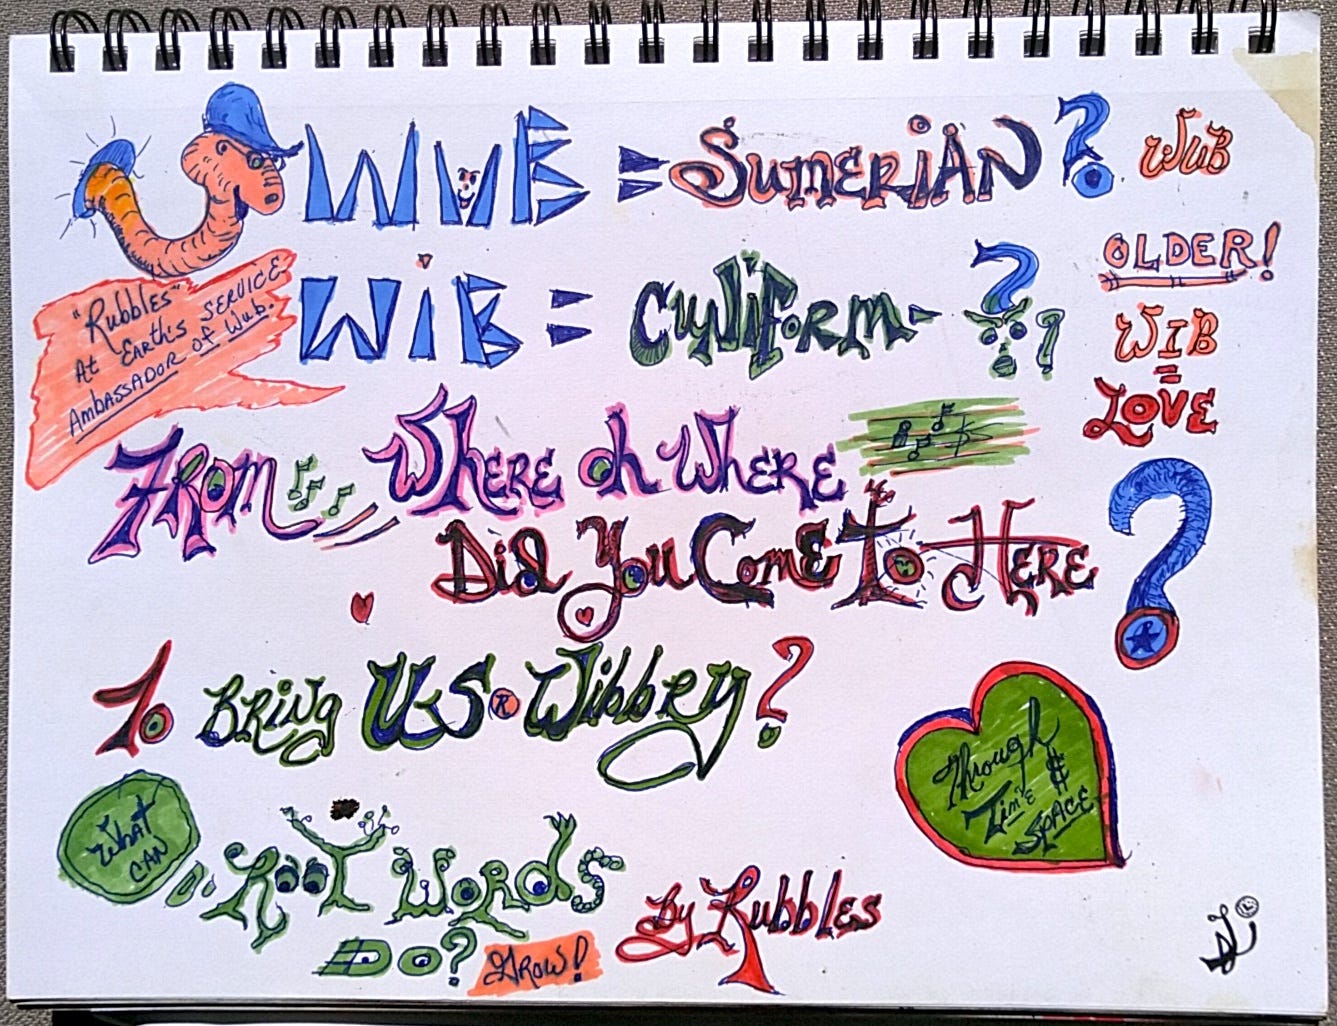 WUB = SUMERIAN? WUB
OLDER!
"Rubbles"
At Earth's SERVICE
AMBASSADOR of Wub.
WiB = CUNIFORM - ??
WIB
=
LOVE
FROM Where oh Where
Did You Come To Here ?
To Bring US Wibbey?
Through
Time &
SPACE
What
CAN
Root Words
Do? GROW!
By Rubbles